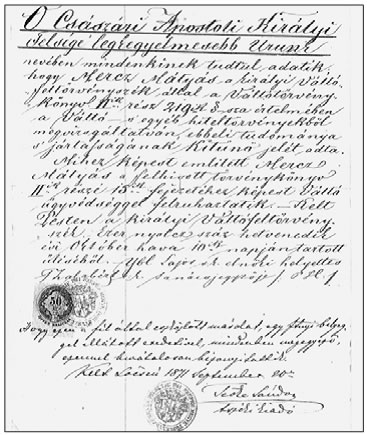 Ő Császári Apostoli Királyi
Felsége legkegyelmesebb Urunk
nevében mindenkinek tudtul adatik,
hogy Mercz Mátyás a királyi Váltó
feltörvényszék által a Váltótörvény
könyv IIik rész 219ik §-sa értelmében
a Váltó – s egyéb hiteltörvényekből
megvizsgáltatván, ebbeli tudománya
s jártasságának kitünő jelét adta.
Mihez képest említett Mercz
Mátyás a felhivott törvénykönyv
IIik részé 15ik fejezetéhez képest Váltó
ügyvédséggel felruháztatik. – Kelt
Pesten a királyi Váltófeltörvény
szék, Ezer nyolcz száz hatvanedik
évi Október hava 10ik napján tartott
üléséből. Lajos elnöki helyettes
50
Hogy ezen másolat, egy ftnyi bélyeg
gel ellátott eredetivel mindenben megegyező,
ezennel hivatalosan bizonyíttatik.
Kelt Lőcsén 1871 September 20án
Sándor